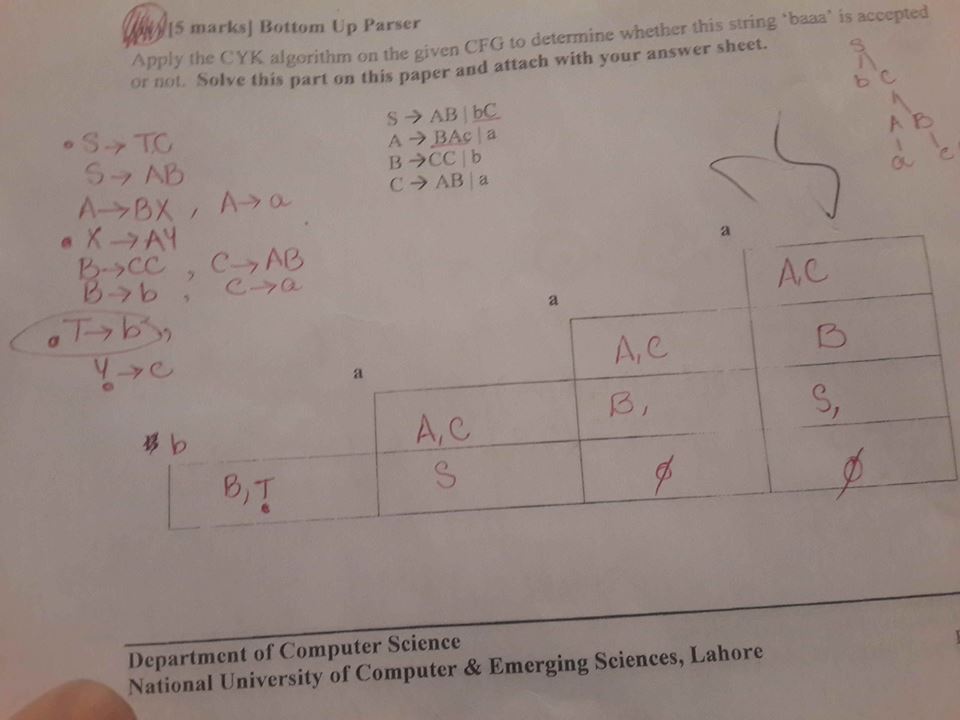 [5 marks] Bottom Up Parser
Apply the CYK algorithm on the given CFG to determine whether this string 'baaa' is accepted
or not. Solve this part on this paper and attach with your answer sheet.
S → AB | bC
A → BAc | a
B → CC | b
C → AB | a
S
b C
A B
a c
• S → TC
S → AB
A → BX , A → a
• X → AY
B → CC , C → AB
B → b , C → a
• T → b ,
Y → c
a
A,C
a
A,C
B
a
A,C
B,
S,
b
B,T
S
ϕ
ϕ
Department of Computer Science
National University of Computer & Emerging Sciences, Lahore